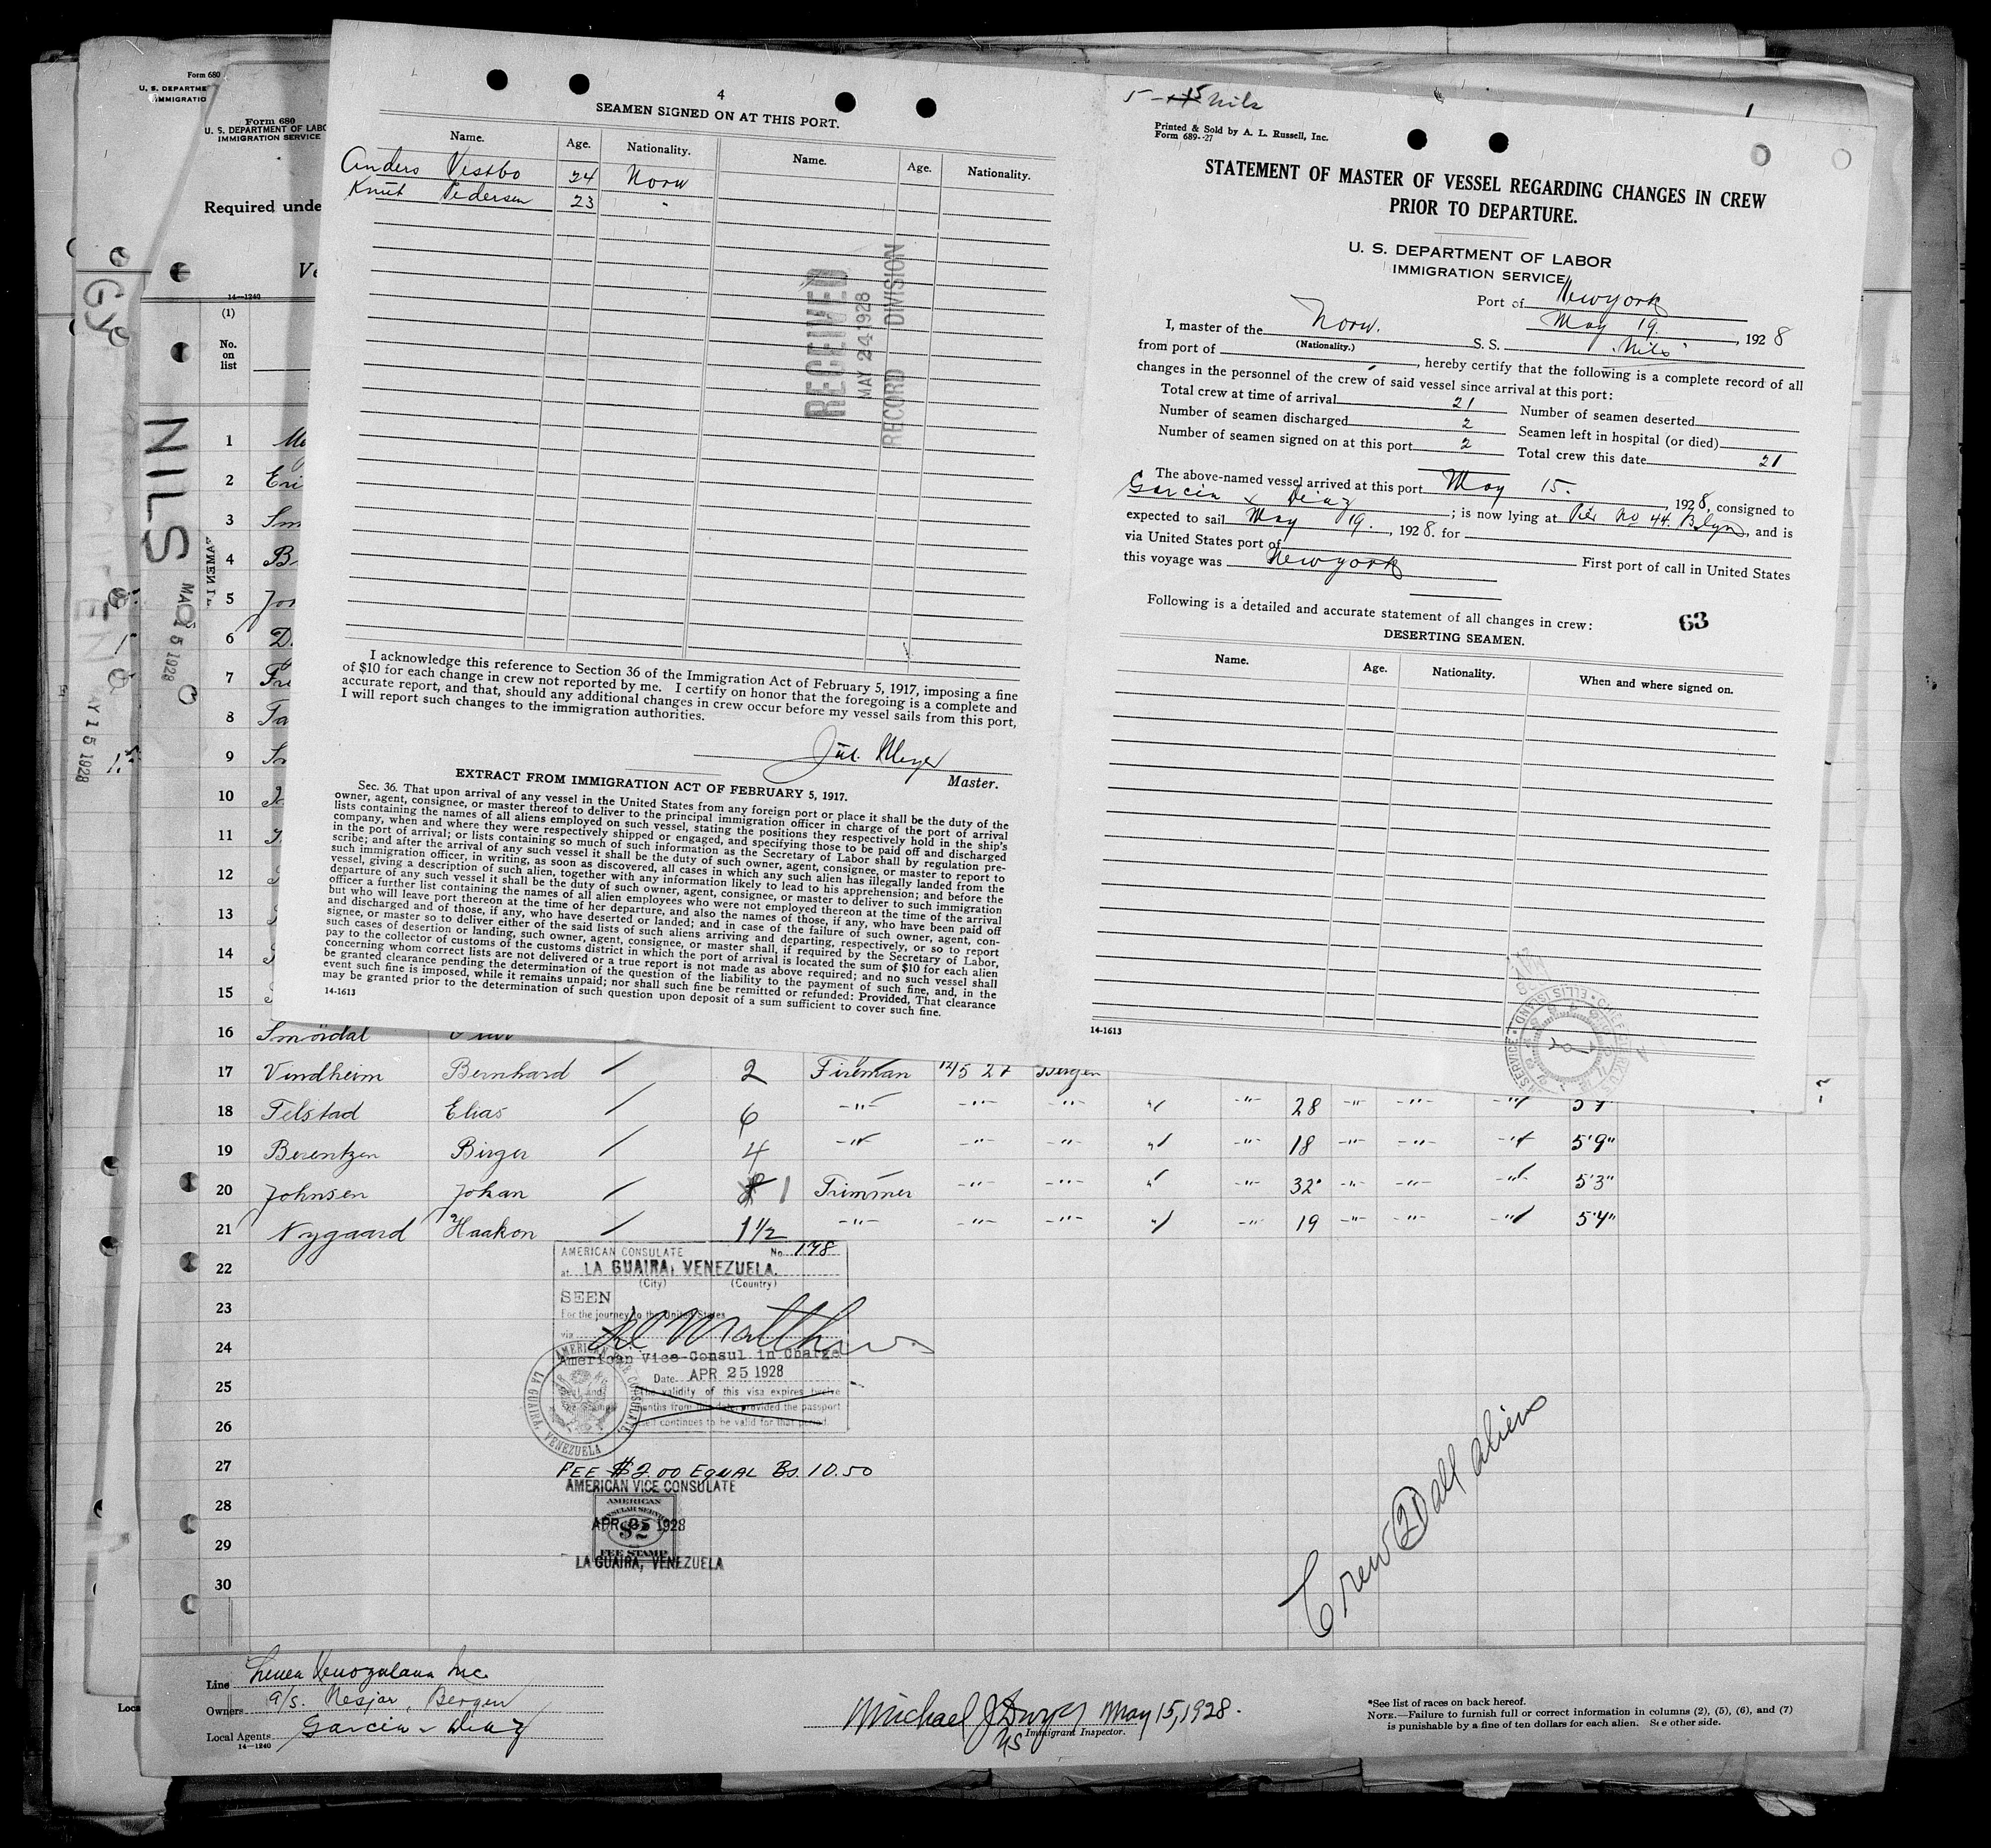 Form 680
U. S. DEPARTME
IMMIGRATIO
Form 680
U. S. DEPARTMENT OF LABO
IMMIGRATION SERVICE
Required unde
Ve
14—1240
(1)
No.
on
list
NILS
MAY 15 1928
AY 15 1928
4
SEAMEN SIGNED ON AT THIS PORT.
Name. Age. Nationality. Name. Age. Nationality.
Anders Vestbo 24 Norw
Knut Pedersen 23 "
RECEIVED
MAY 24 1928
RECORD DIVISION
I acknowledge this reference to Section 36 of the Immigration Act of February 5, 1917, imposing a fine
of $10 for each change in crew not reported by me. I certify on honor that the foregoing is a complete and
accurate report, and that, should any additional changes in crew occur before my vessel sails from this port,
I will report such changes to the immigration authorities.
Jul. Meyer
Master.
EXTRACT FROM IMMIGRATION ACT OF FEBRUARY 5, 1917.
Sec. 36. That upon arrival of any vessel in the United States from any foreign port or place it shall be the duty of the
owner, agent, consignee, or master thereof to deliver to the principal immigration officer in charge of the port of arrival
lists containing the names of all aliens employed on such vessel, stating the positions they respectively hold in the ship's
company, when and where they were respectively shipped or engaged, and specifying those to be paid off and discharged
in the port of arrival; or lists containing so much of such information as the Secretary of Labor shall by regulation pre-
scribe; and after the arrival of any such vessel it shall be the duty of such owner, agent, consignee, or master to report to
such immigration officer, in writing, as soon as discovered, all cases in which any such alien has illegally landed from the
vessel, giving a description of such alien, together with any information likely to lead to his apprehension; and before the
departure of any such vessel it shall be the duty of such owner, agent, consignee, or master to deliver to such immigration
officer a further list containing the names of all alien employees who were not employed thereon at the time of the arrival
but who will leave port thereon at the time of her departure, and also the names of those, if any, who have been paid off
and discharged and of those, if any, who have deserted or landed; and in case of the failure of such owner, agent, con-
signee, or master so to deliver either of the said lists of such aliens arriving and departing, respectively, or so to report
such cases of desertion or landing, such owner, agent, consignee, or master shall, if required by the Secretary of Labor,
pay to the collector of customs of the customs district in which the port of arrival is located the sum of $10 for each alien
concerning whom correct lists are not delivered or a true report is not made as above required; and no such vessel shall
be granted clearance pending the determination of the question of the liability to the payment of such fine, and, in the
event such fine is imposed, while it remains unpaid; nor shall such fine be remitted or refunded: Provided, That clearance
may be granted prior to the determination of such question upon deposit of a sum sufficient to cover such fine.
14-1613
5-15 Nils
1
Printed & Sold by A. L. Russell, Inc.
Form 689--27
STATEMENT OF MASTER OF VESSEL REGARDING CHANGES IN CREW
PRIOR TO DEPARTURE.
U. S. DEPARTMENT OF LABOR
IMMIGRATION SERVICE
Port of Newyork
May 19. , 1928
I, master of the Norw. S. S. "Nils"
(Nationality.)
from port of , hereby certify that the following is a complete record of all
changes in the personnel of the crew of said vessel since arrival at this port:
Total crew at time of arrival 21 Number of seamen deserted
Number of seamen discharged 2 Seamen left in hospital (or died)
Number of seamen signed on at this port 2 Total crew this date 21
The above-named vessel arrived at this port May 15. , 1928, consigned to
Garcia & Diaz ; is now lying at Pier no 44. Bklyn, and is
expected to sail May 19. , 1928. for
via United States port of First port of call in United States
this voyage was Newyork
Following is a detailed and accurate statement of all changes in crew:
63
DESERTING SEAMEN.
Name. Age. Nationality. When and where signed on.
14-1613
1
2 Eri
3 Sm
4 B
5 Jo
6 D.
7 Fri
8
9
10
11
12
13
14
15
16 Smördal
17 Vindheim Bernhard / 2 Fireman 12/5 27 Bergen
18 Telstad Elias / 6 -"- -"- -"- " -"- 28 -"- -"- -"-
19 Berentzen Birger / 4 -"- -"- -"- " -"- 18 -"- -"- -"- 5'9"
20 Johnsen Johan / 1 Trimmer -"- -"- " -"- 32 -"- -"- -"- 5'3"
21 Nygaard Haakon / 1 1/2 -"- -"- -"- " -"- 19 -"- -"- -"- 5'4"
22
23
24
25
26
27
28
29
30
AMERICAN CONSULATE No. 178
at LA GUAIRA, VENEZUELA.
(City) (Country)
SEEN
For the journey to the United States
via
American Vice-Consul in Charge
Date APR 25 1928
The validity of this visa expires twelve
months from this date, provided the passport
itself continues to be valid for that period.
AMERICAN VICE CONSULATE
LA GUAIRA, VENEZUELA
FEE $2.00 EQUAL Bs. 10.50
AMERICAN VICE CONSULATE
AMERICAN
CONSULAR SERVICE
APR 25 1928
$2
FEE STAMP
LA GUAIRA, VENEZUELA
Crew 21 all aliens
Line Linea Venezolana Inc.
Owners a/s. Nesjar, Bergen
Local Agents Garcia & Diaz
14—1240
Michael J Dwyer May 15, 1928.
US Immigrant Inspector.
*See list of races on back hereof.
NOTE.—Failure to furnish full or correct information in columns (2), (5), (6), and (7)
is punishable by a fine of ten dollars for each alien. See other side.